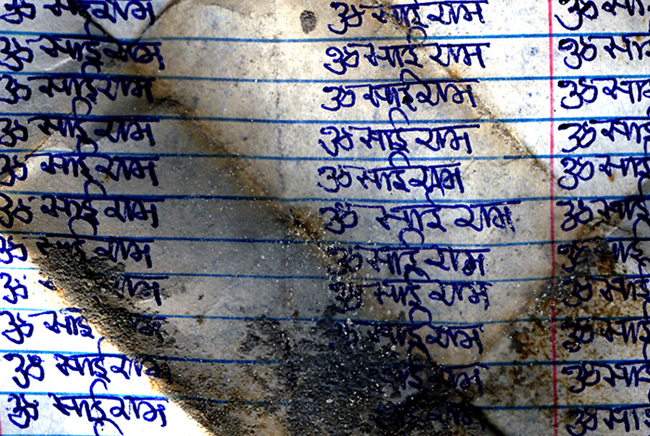 ॐ साई राम ॐ साई राम ॐ साई
ॐ साई राम ॐ साई राम ॐ साई
ॐ साई राम ॐ साई राम ॐ सा
ॐ साई राम ॐ साई राम ॐ साई
ॐ साई राम ॐ साई राम ॐ साई
ॐ साई राम ॐ साई राम ॐ साई
ॐ साई राम ॐ साई राम ॐ साई
ॐ ॐ साई राम ॐ साई
ॐ साई ॐ साई राम ॐ साई
ॐ साई राम राम ॐ साई
ॐ साई राम ॐ सा